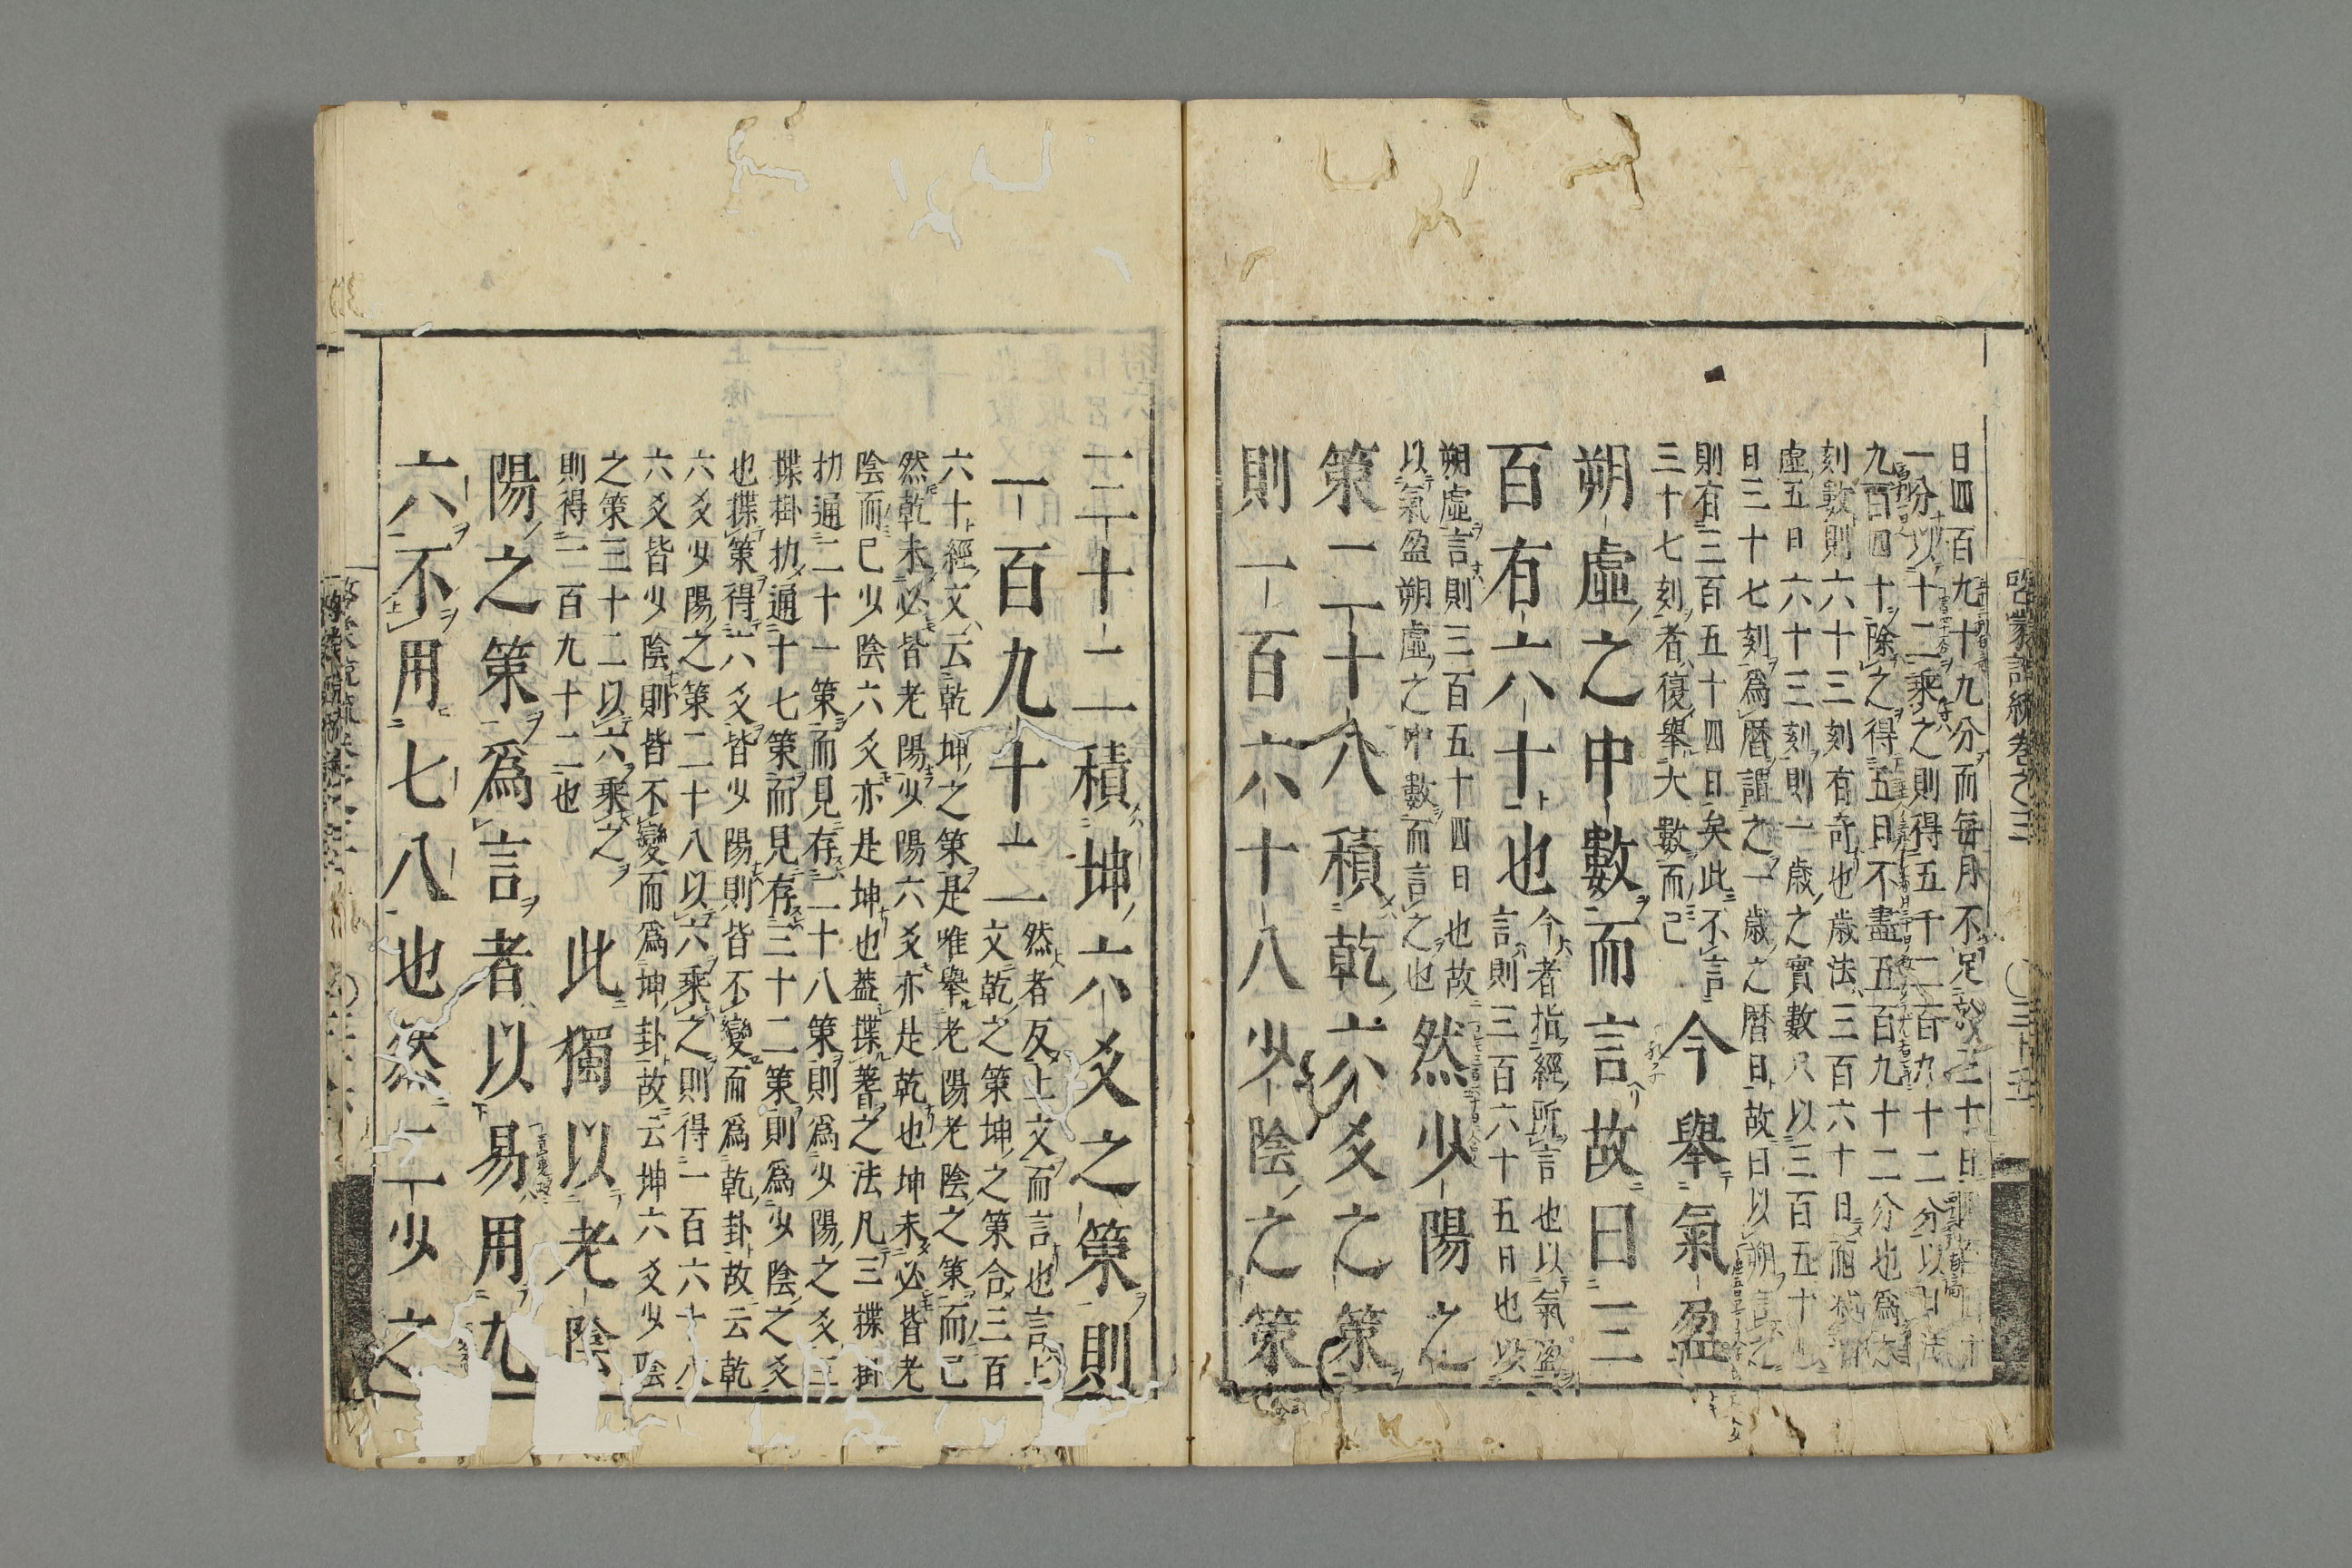 日四百九十九分而每月不足故三十日
一分以十二乘之則得五千二百九十二分以日法
九百四十除之得五日不盡五百九十二分也爲
刻數則六十三刻有奇也歲法三百六十日
虛五日六十三刻則一歲之實數只以三百五十
日三十七刻爲曆謂之一歲之曆日故曰以朔言之
則有三百五十四日矣此不言
三十七刻者復舉大數而已
今舉氣盈
朔虛之中數而言故曰三
百有六十也
今者指經所言也以氣盈
言則三百六十五日也以
朔虛言則三百五十四日也故
以氣盈朔虛之中數而言之也
然少陽之
策二十八積乾六爻之策
則一百六十八少陰之策
啓蒙諺統卷之三 三十五
三十二積坤六爻之策則
一百九十二
然者反上文而言也言上
文乾之策坤之策合三百
六十經文云乾坤之策是唯舉老陽老陰之策而已
然乾未必皆老陽少陽六爻亦是乾也坤未必皆老
陰而已少陰六爻亦是坤也蓋揲蓍之法凡三揲掛
扐通二十一策而見存二十八策則爲少陽之爻三
揲掛扐通十七策而見存三十二策則爲少陰之爻
也揲策得六爻皆少陽則皆不變而爲乾卦故云乾
六爻少陽之策二十八以六乘之則得一百六十八
六爻皆少陰則皆不變而爲坤卦故云坤六爻少陰
之策三十二以六乘之
則得一百九十二也
此獨以老陰
陽之策爲言者以易用九
六不用七八也然二少之